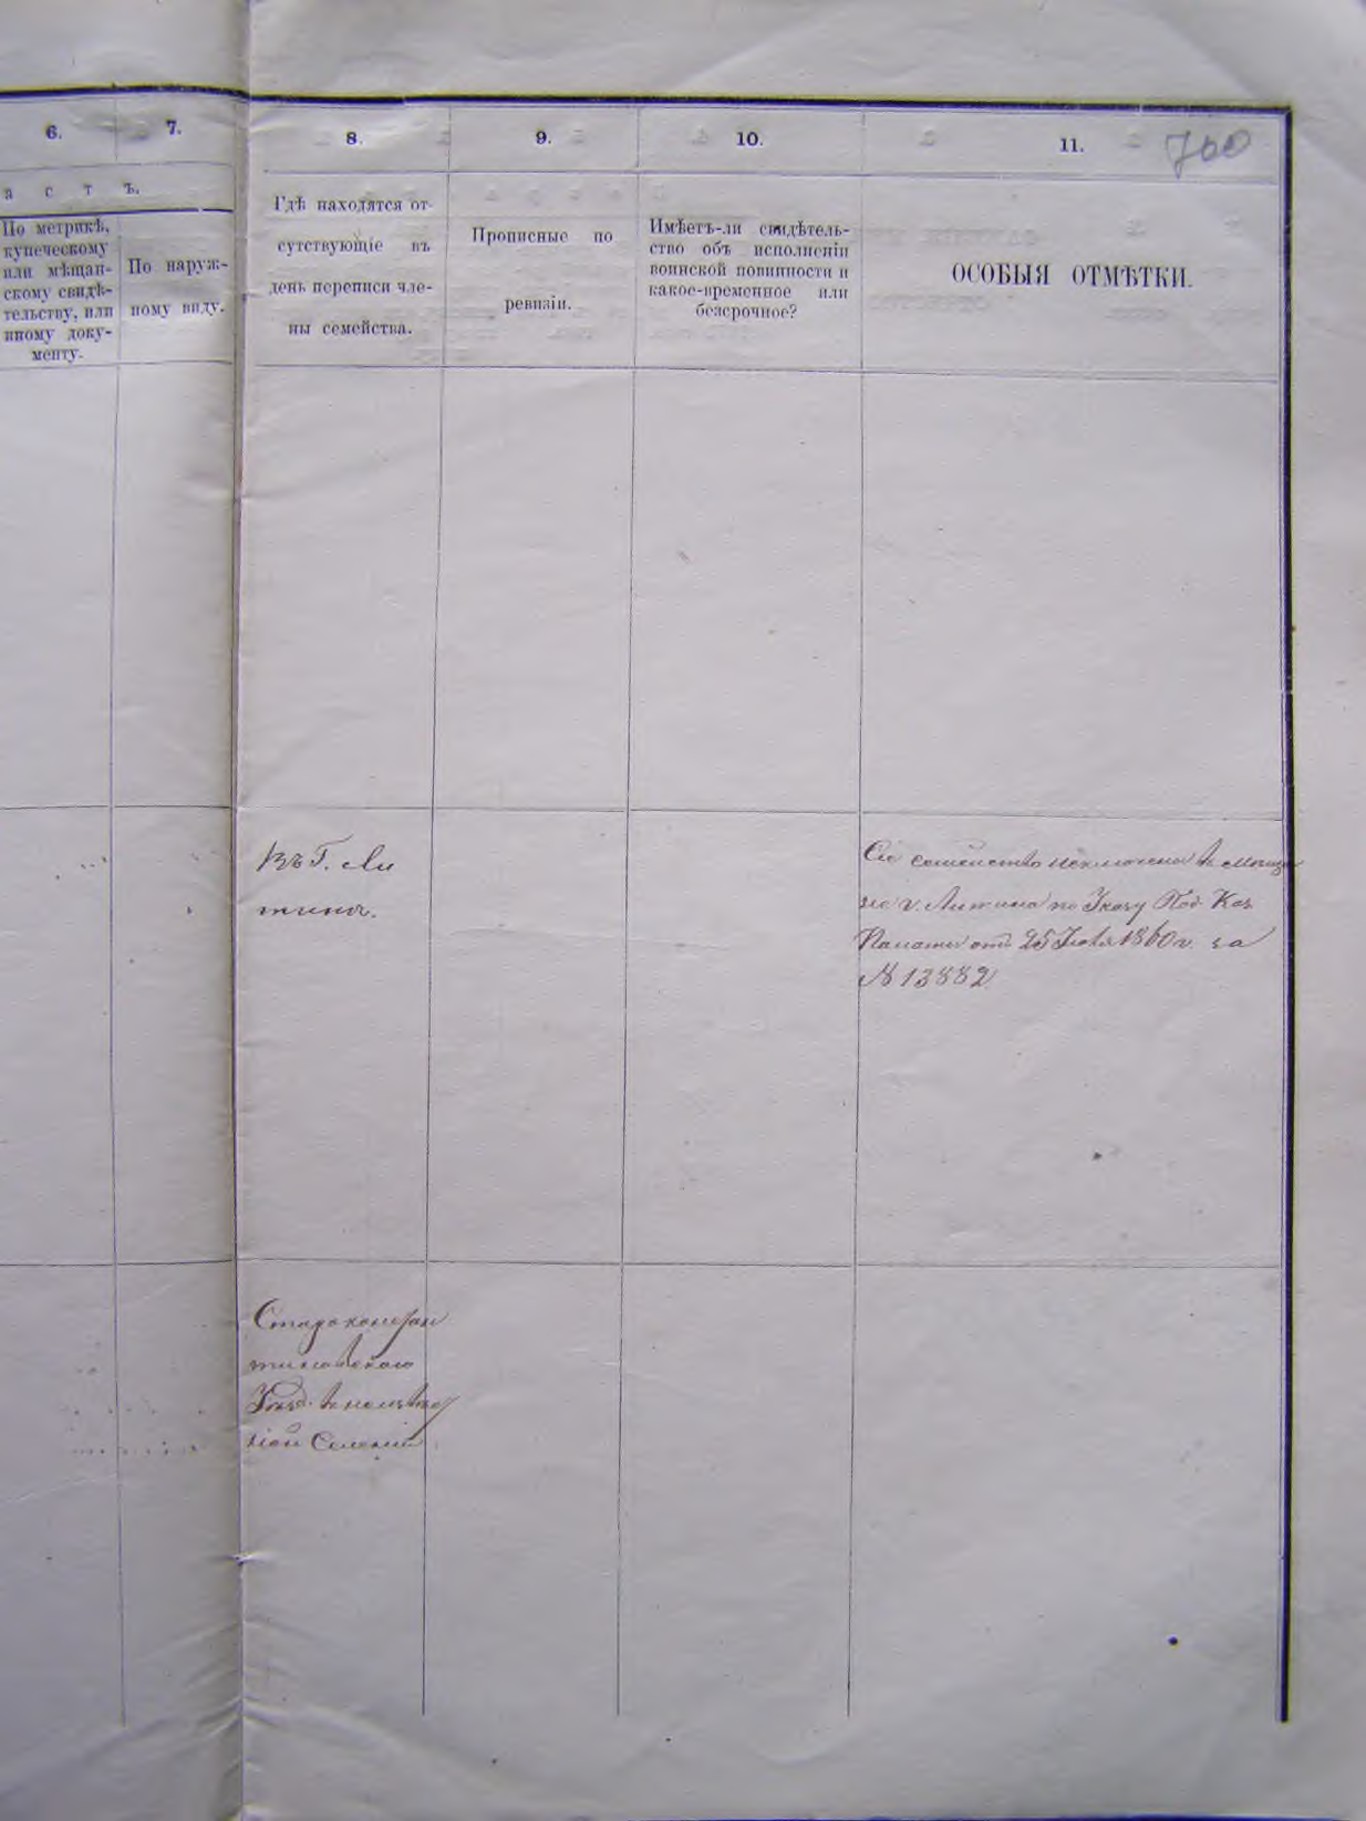 6.
7.
8.
9.
10.
11.
700
а с т ъ.
По метрикѣ,
купеческому
или мѣщан-
скому свидѣ-
тельству, или
иному доку-
менту.
По наруж-
ному виду.
Гдѣ находятся от-
сутствующіе въ
день переписи чле-
ны семейства.
Прописные по
ревизіи.
Имѣетъ-ли свидѣтель-
ство объ исполненіи
воинской повинности и
какое-временное или
безсрочное?
ОСОБЫЯ ОТМѢТКИ.
Въ Г. Ли
тинѣ.
Сіе семейство
г. Литина по Указу Под. Каз.
Палаты отъ 25 1860 г. за
№ 13882
Староконстан
тиновскаго
Уѣзд.